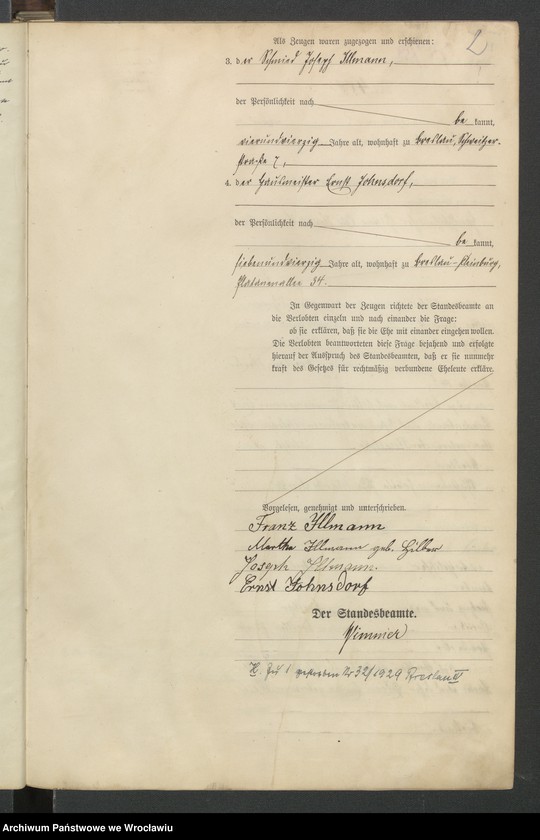 2
Als Zeugen waren zugezogen und erschienen:
3. der Schmied Joseph Illmann,
der Persönlichkeit nach
be kannt,
vierundvierzig Jahre alt, wohnhaft zu Breslau, Schweitzer-
straße 7,
4. der Haushmeister Ernst Johnsdorf,
der Persönlichkeit nach
be kannt,
siebenundvierzig Jahre alt, wohnhaft zu Breslau-Kleinburg,
Platanenallee 34.
In Gegenwart der Zeugen richtete der Standesbeamte an
die Verlobten einzeln und nach einander die Frage:
ob sie erklären, daß sie die Ehe mit einander eingehen wollen.
Die Verlobten beantworteten diese Frage bejahend und erfolgte
hierauf der Ausspruch des Standesbeamten, daß er sie nunmehr
kraft des Gesetzes für rechtmäßig verbundene Eheleute erkläre.
Vorgelesen, genehmigt und unterschrieben.
Franz Illmann
Martha Illmann geb. Hilber
Joseph Illmann.
Ernst Johnsdorf
Der Standesbeamte.
Wimmer
H. zu 1 gestorben Nr 32/1929 Breslau
Archiwum Państwowe we Wrocławiu